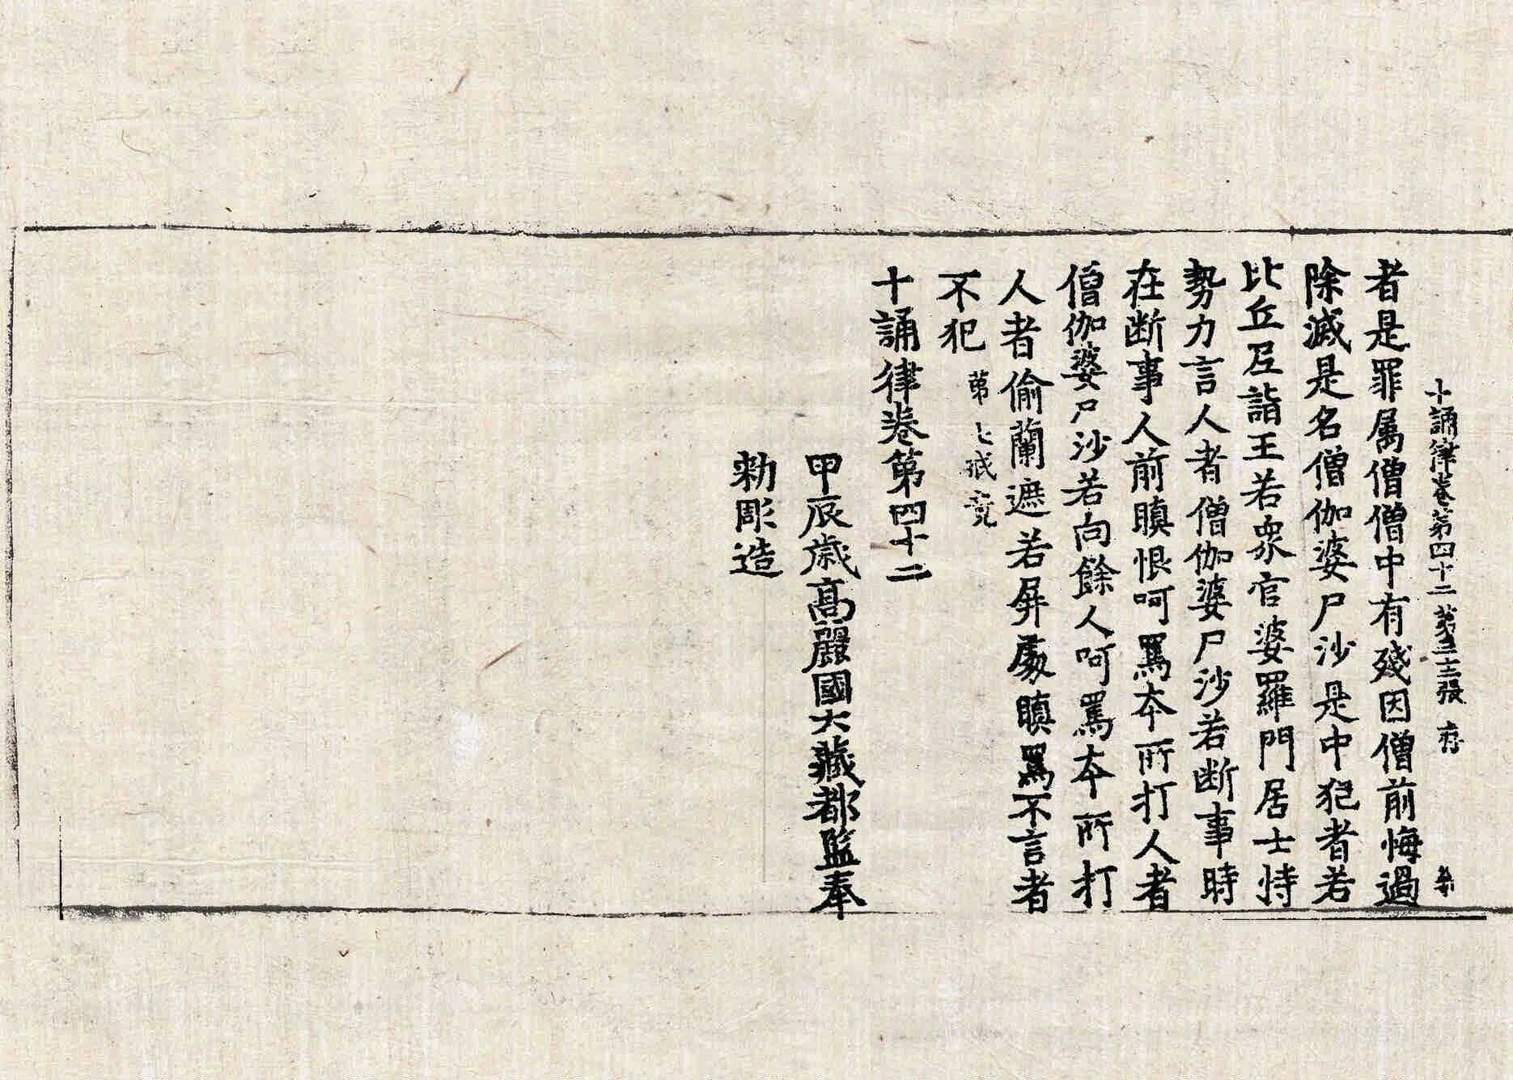 十誦律卷第四十二 第三十二張 存
者是罪屬僧僧中有殘因僧前悔過
除滅是名僧伽婆尸沙是中犯者若
比丘尼詣王若衆官婆羅門居士恃
勢力言人者僧伽婆尸沙若斷事時
在斷事人前瞋恨呵罵本所打人者
僧伽婆尸沙若向餘人呵罵本所打
人者偷蘭遮若屏處瞋罵不言者
不犯 第七戒竟
十誦律卷第四十二
甲辰歳高麗國大藏都監奉
勑彫造